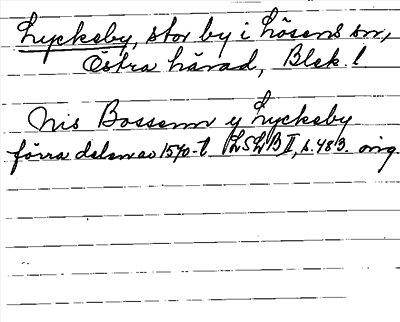 Lyckeby, stor by i Lösens sn,
Östra härad, Blek. l.
Nis Bossenn y Lyckeby
förra delen av 1570-t. LSLB II, s. 483. orig.